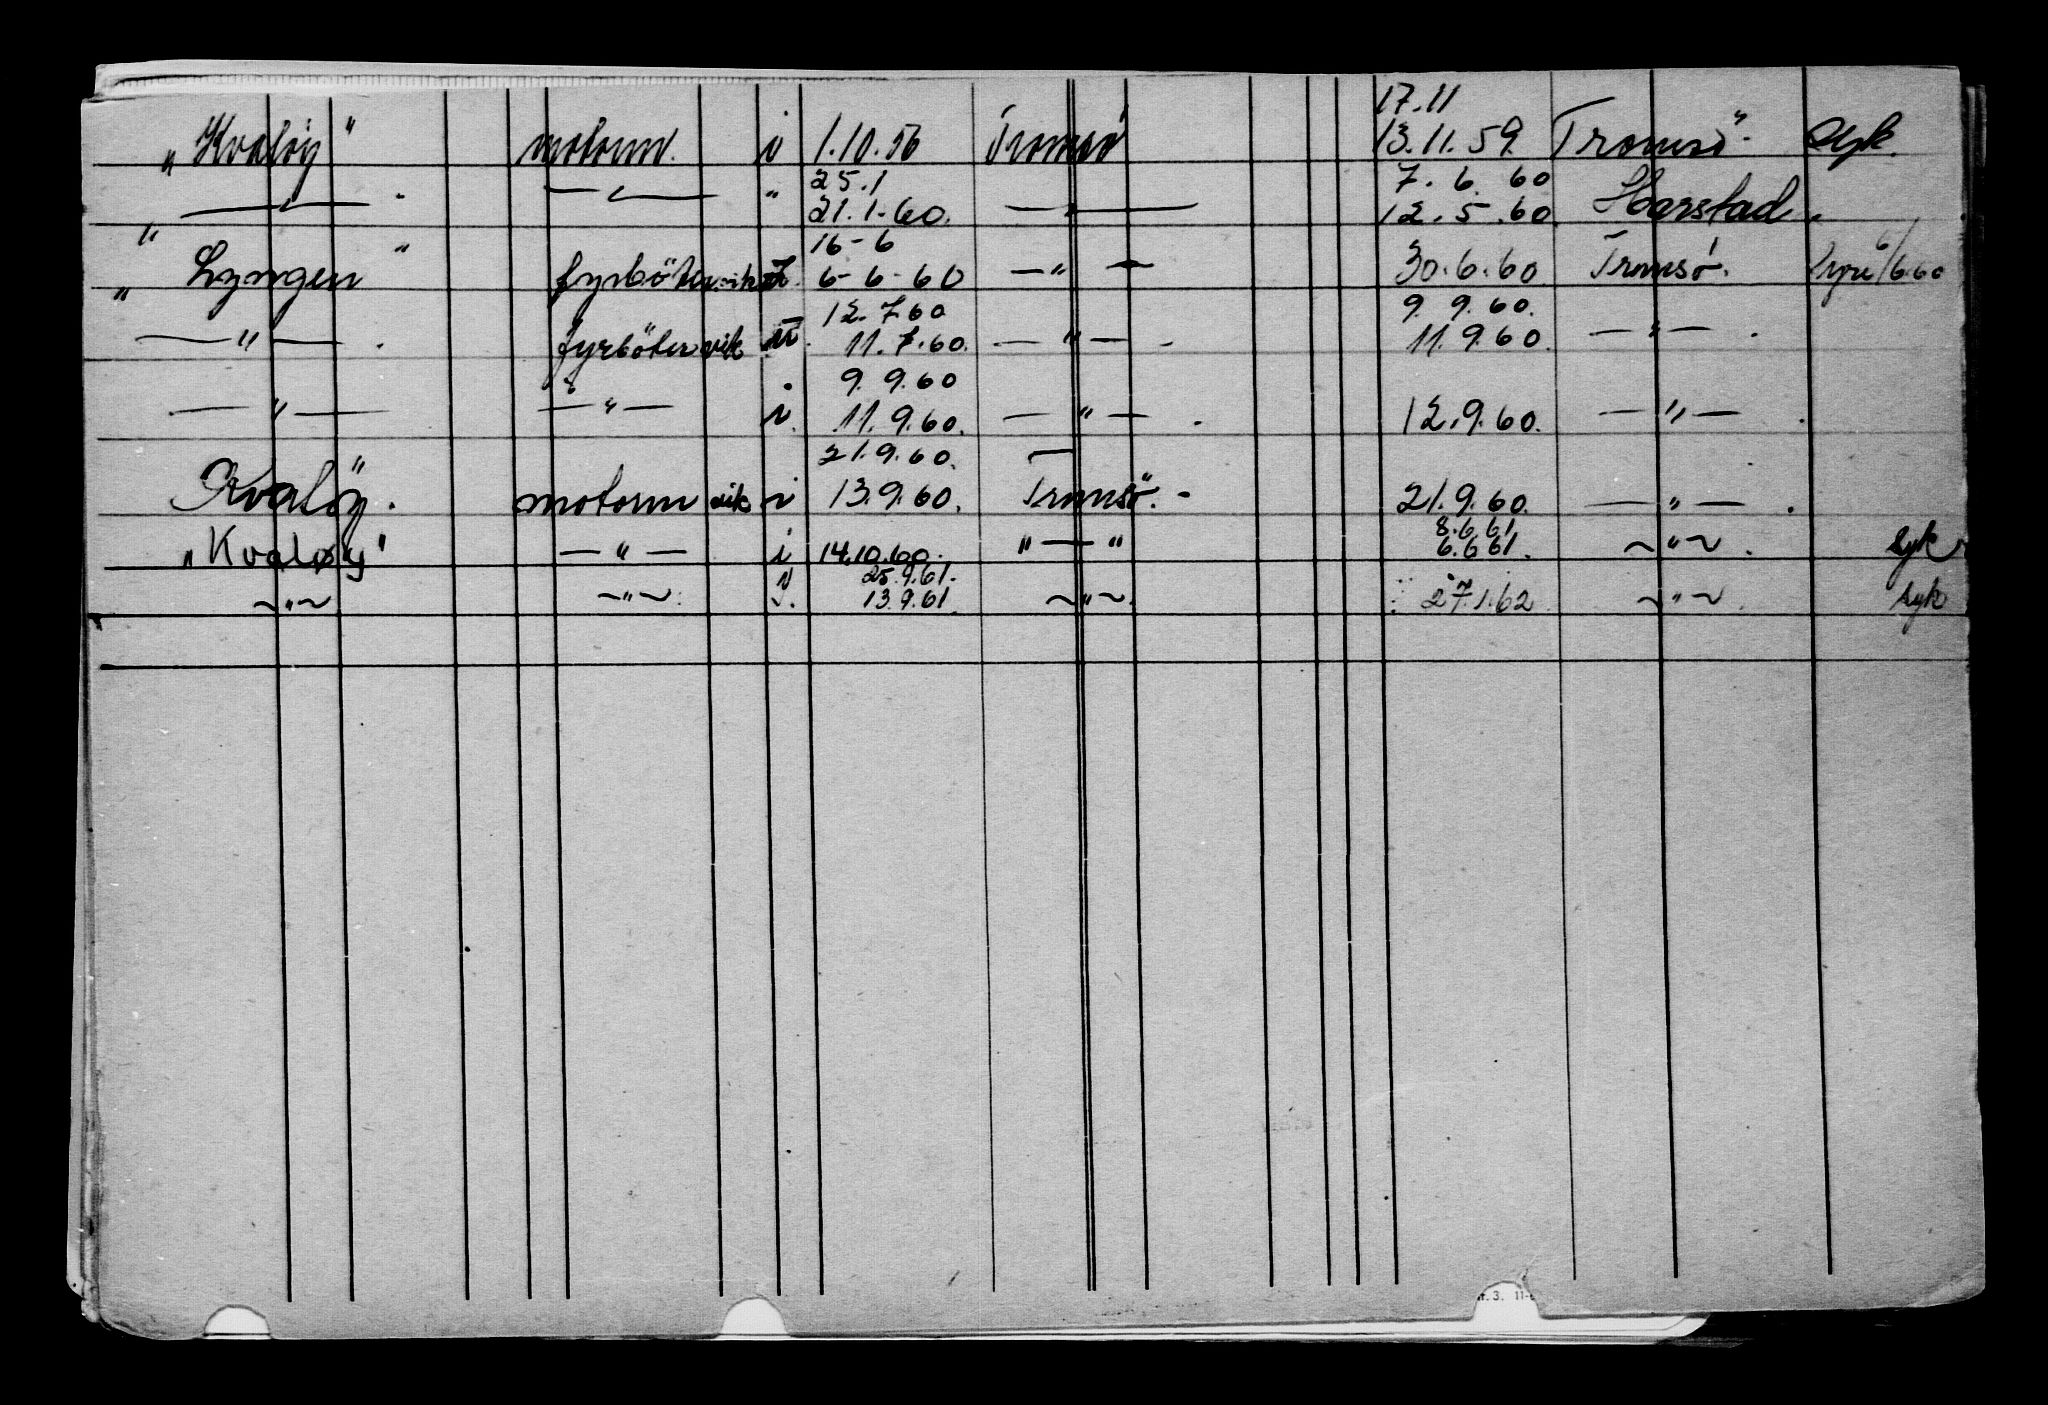 17.11
„Kvaløy" motorm. i 1.10.56 Tromsø 13.11.59. Tromsø. Syk.
25.1 7.6.60
—„— . —„— " 21.1.60. —„— 12.5.60 Harstad.
16-6
„Lyngen" fyrböter vik 6-6-60 —"— 30.6.60 Tromsø. 6/6.60
12.7.60 9.9.60.
—"— . fyrböter vik 11.7.60. —"— . 11.9.60. —"— .
9.9.60
—"— —"— i. 11.9.60. —"— . 12.9.60. —"— .
21.9.60.
Kvaløy. motorm vik i 13.9.60. Tromsö. - 21.9.60. —"— .
8.6.61
„Kvaløy" —"— i 14.10.60. "—" 6.6.61. ~"~ . Syk
25.9.61.
~"~ ~"~ . 13.9.61. ~"~. 27.1.62 ~"~ . Syk